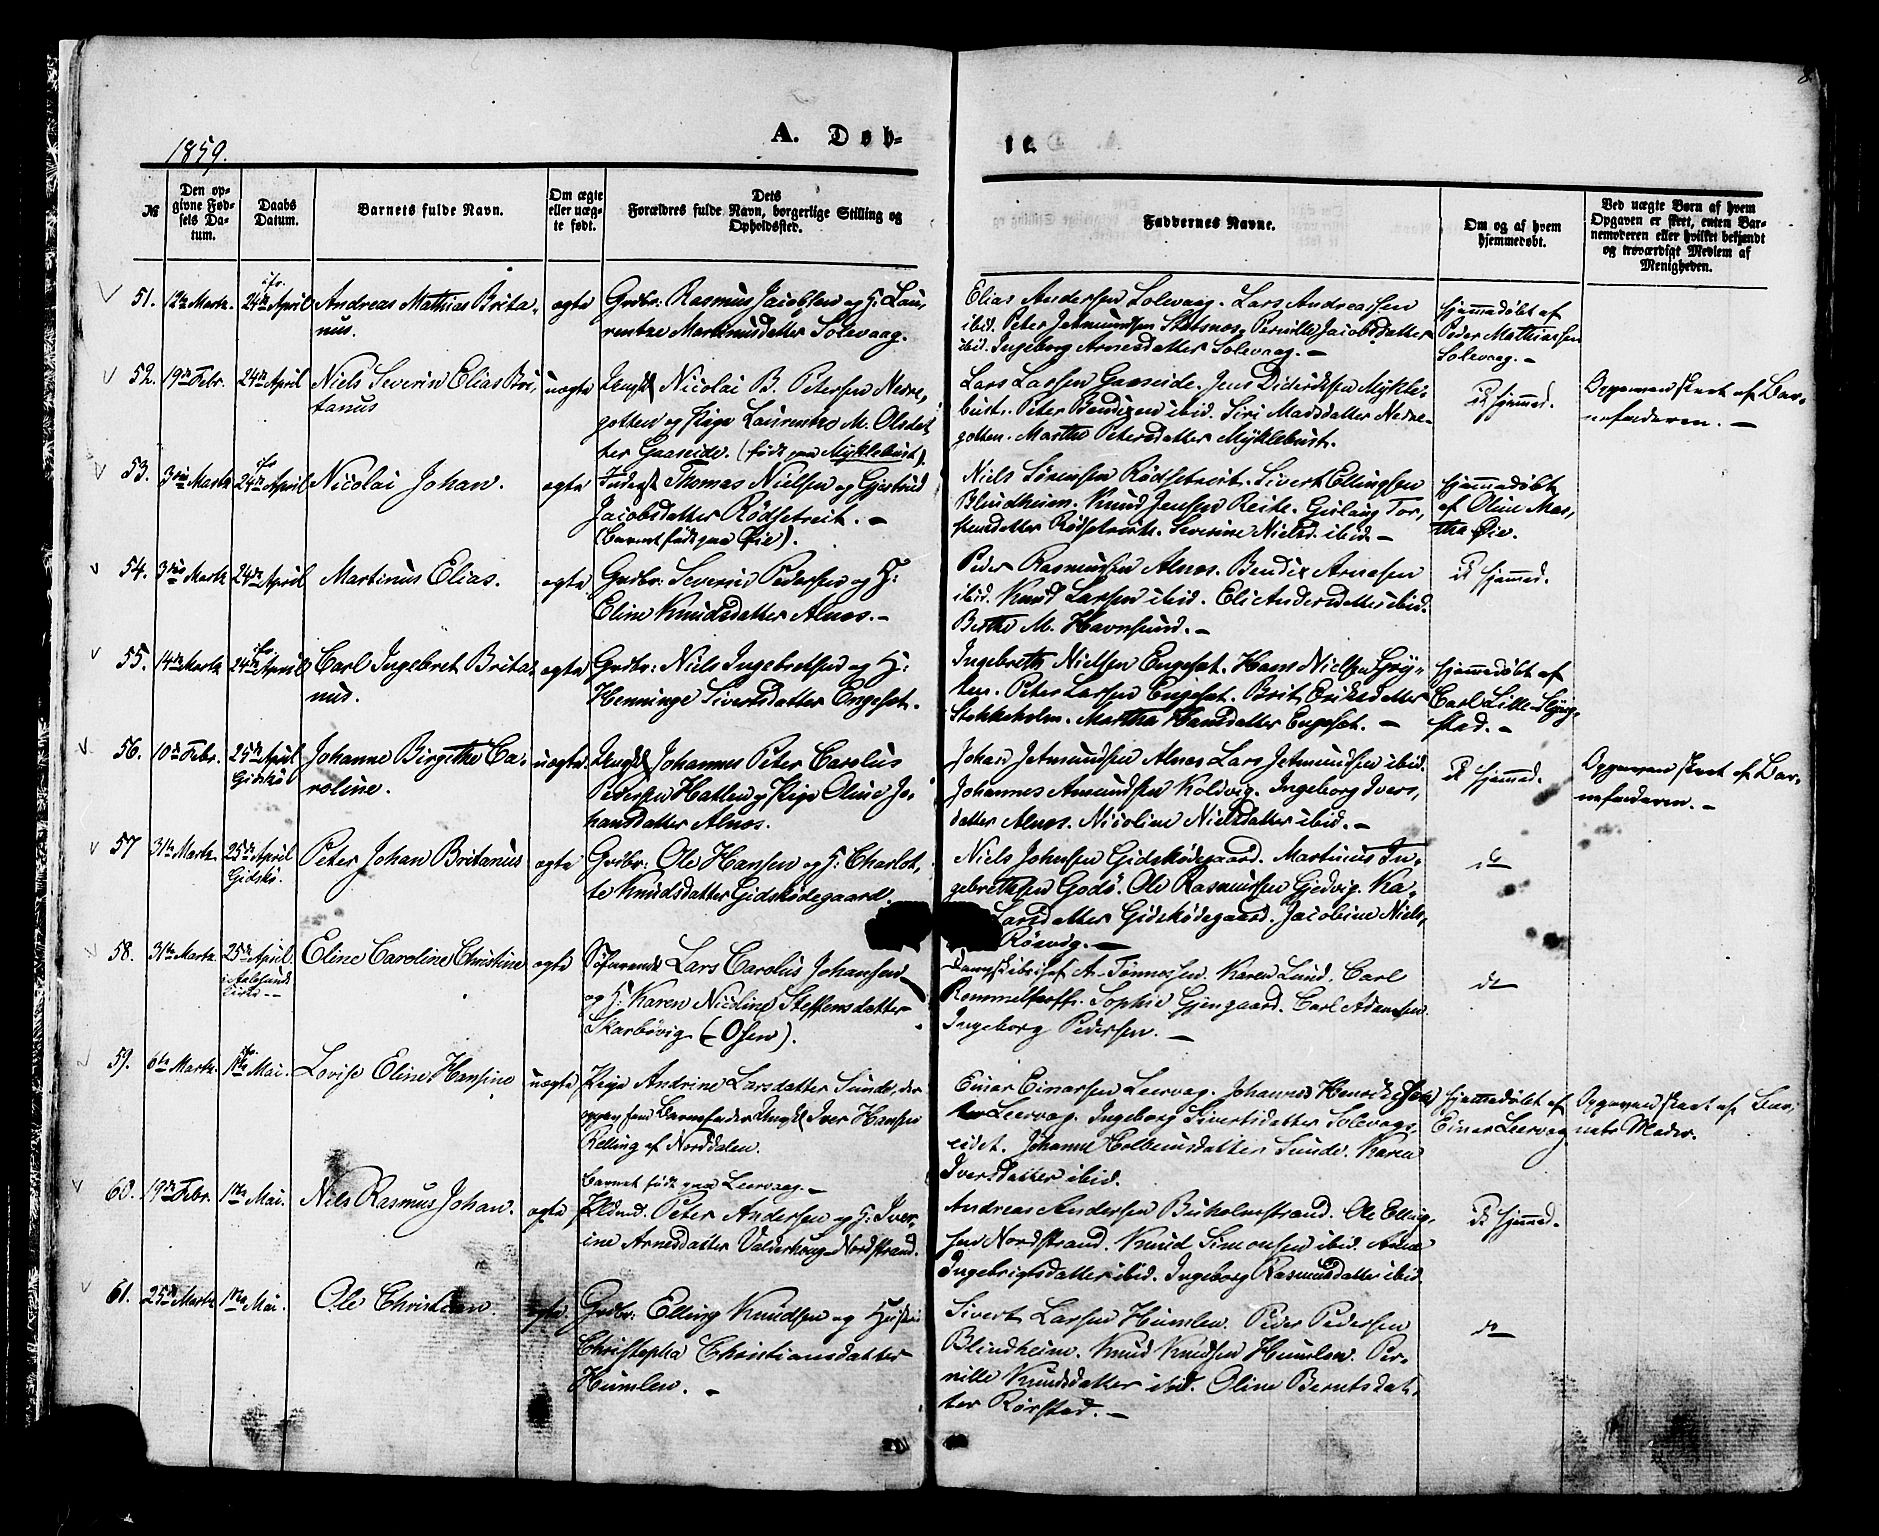 8
1859.
A. Døb-
te.
№
Den op-
givne Fød-
sels Da-
tum.
Daabs
Datum.
Barnets fulde Navn.
Om ægte
eller uæg-
te født.
Dets
Forældres fulde Navn, borgerlige Stilling og
Opholdssted.
Faddernes Navne.
Om og af hvem
hjemmedøbt.
Ved uægte Børn af hvem
Opgaven er skeet, enten Bar-
nemoderen eller hvilket bekjendt
og troværdigt Medlem af
Menigheden.
51. 12te Marts. 24de April Andreas Mathias Brita-
nus.
ægte
Grdbr: Rasmus Jacobsen og H: Lau-
rentze Martinusdatter Solevaag.
Elias Andersen Solevaag. Lars Andreassen
ibid. Peter Jetmundsen Slotsnes. Pernille Jacobsdatter
ibid. Ingeborg Arnesdatter Solevaag. –
hjemmedøbt af
Peder Mathiassen
Solevaag. –
52. 19de Febr. 24de April Niels Severin Elias Bri-
tanus
uægte
Ungk Nicolai B. Petersen Nedre-
gotten og Pige Laurentze M. Olsdat-
ter Gaaseide. (født paa Myklebust).
Lars Larsen Gaaseide. Jens Dideriksen Mykle-
bust. Peter Bendixen ibid. Siri Madsdatter Nedre-
gotten. Marthe Petersdatter Myklebust.
ei hjemmed.
Opgaven skeet af Bar-
nefaderen. –
53. 3die Marts 24de April Nicolai Johan.
ægte
Inderst Thomas Nielsen og Gjertrud
Jacobsdatter Rødsetreit. –
(Barnet født paa Øie).
Niels Sørensen Rødsetreit. Sivert Ellingsen
Blindheim. Knud Jensen Reite. Gislaug Tor-
stensdatter Rødsetreit. Severine Nielsd. ibid. –
hjemmedøbt
af Oline Mar-
tha Øie.
54. 3die Marts 24de April Martinus Elias.
ægte
Grdbr: Severin Pedersen og H:
Eline Knudsdatter Alnes. –
Peder Rasmussen Alnes. Bendix Arnesen
ibid. Knud Larsen ibid. Eli Andersdatter ibid.
Berthe M. Havnsund. –
ei hjemmed.
55. 14de Marts 24de April Carl Ingebret Brita-
nus.
ægte
Grdbr: Niels Ingebretsen og H:
Henninge Sivertsdatter Engeset.
Ingebreth Nielsen Engeset. Hans Nielsen Gry-
ten. Peter Larsen Engeset. Brit Eriksdatter
Stokkeholm. Martha Hansdatter Engeset. –
hjemmedøbt af
Carl Lille-Hjørg-
stad. –
56. 10de Febr. 25de April
Gidskø
Johanne Birgithe Ca-
roline.
uægte.
Ungk Johannes Peter Carolus
Pedersen Hatlen og Pige Oline Jo-
hansdatter Alnes.
Johan Jetmundsen Alnes. Lars Jetmundsen ibid.
Johannes Amundsen Koldvig. Ingeborg Ivers-
datter Alnes. Nicoline Nielsdatter ibid. –
ei hjemmed.
Opgaven skeet af Bar-
nefaderen. –
57 3die Marts. 25de April
Gidskø.
Peter Johan Britanus
ægte
Grdbr: Ole Hansen og H: Charlot-
te Knudsdatter Gidskødegaard.
Niels Johnsen Gidskødegaard. Martinus In-
gebretsen Godø. Ole Rasmussen Gjedvig. Ka-
Larsdatter Gidskødegaard. Jacobine Niels-
Rösvig. –
do
58. 31te Marts. 25de April.
i Aalesunds
Kirke --
Eline Caroline Christine
ægte
Søfarende Lars Carolus Johansen
og H: Karen Nicoline Steffensdatter
Skarbövig (Osen).
Dampskibschef A. Tönnessen. Karen Lund. Carl
Rommelhoff. Sophie Gjengaard. Carl Adamsen.
Ingeborg Pedersen. –
do
59. 6te Marts. 1ste Mai. Lovise Eline Hansine
uægte
Pige Andrine Larsdatter Sunde, der
opgav som Barnefader Ungk Iver Hansen
Relling af Norddalen.
Barnet født paa Leervaag. –
Einar Einarsen Leervaag. Johannes Henriksen
Leervaag. Ingeborg Sivertsdatter Solevags-
eidet. Johanne Holbeinsdatter Sunde. Karen
Iversdatter ibid.
hjemmedøbt af
Einar Leervaag
Opgaven skeet af Bar-
nets Moder.
60. 19de Febr. 1ste Mai. Nils Rasmus Johan.
ægte
Pldsmd. Peter Andersen og H: Iver-
ine Arnesdatter Valderhoug-Nordstrand.
Andreas Andersen Buholmstrand. Ole Elling-
sen Nordstrand. Knud Simonsen ibid. Ane
Ingebrigtsdatter ibid. Ingeborg Rasmusdatter ibid.
ei hjemmed.
61. 25de Marts. 1ste Mai. Ole Christian.
ægte.
Grdbr: Elling Knudsen og Hustru
Christopha Christiansdatter
Humlen. –
Sivert Larsen Humlen. Peder Pedersen
Blindheim. Knud Knudsen Humlen. Per-
nille Knudsdatter ibid. Oline Berntsdat-
ter Rörstad. –
do